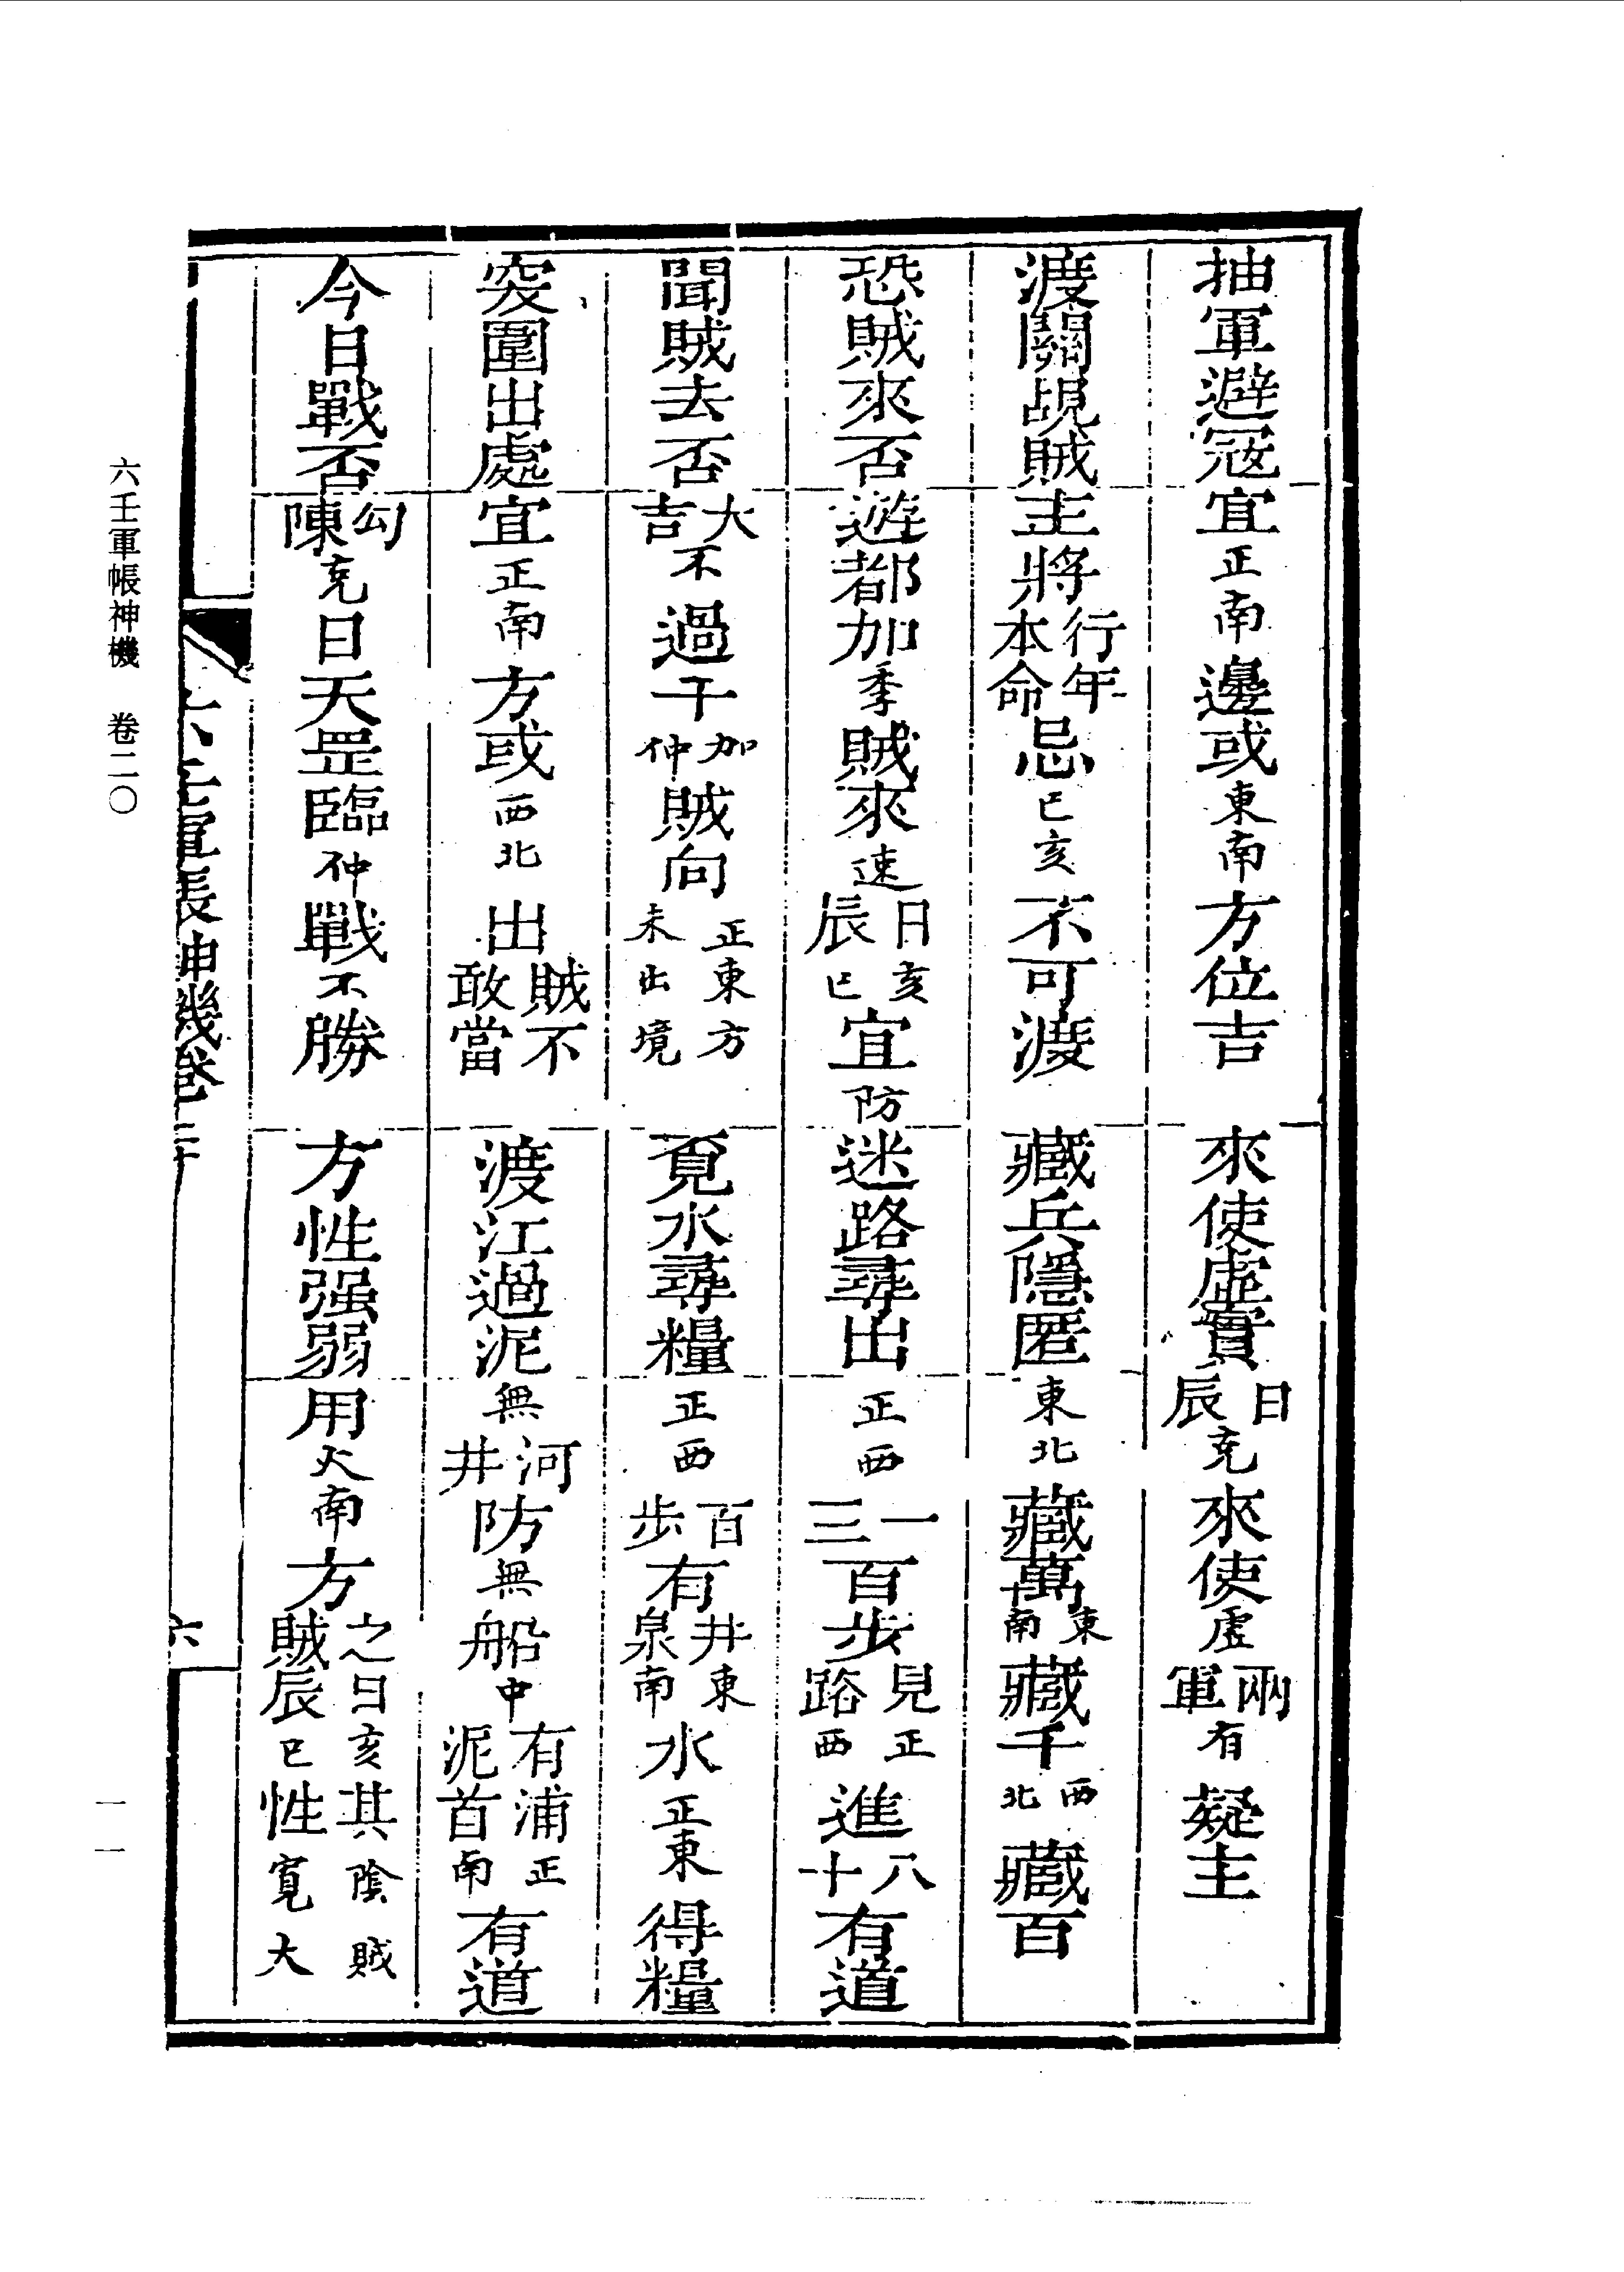 抽軍避寇宜正南邊或東南方位吉
來使虛實日辰克來使虛兩軍有疑主
渡關覘賊主將行年本命忌巳亥不可渡
藏兵隱匿東北藏萬東南藏千西北藏百
恐賊來否遊都加季賊來速日辰亥巳宜防
迷路尋出正西一三百步見路正西進八十有道
聞賊去否大吉不過干加仲賊向正東方未出境
覓水尋糧正西百步有井泉東南水正東得糧
突圍出處宜正南方或西北出賊不敢當
渡江過泥無河井防無船中有泥浦首正南有道
今日戰否勾陳克日天罡臨仲戰不勝
方性强弱用火南方之賊日辰亥巳其性陰寬賊大
六壬軍帳神機卷二十
六
六壬軍帳神機 卷二〇
一一